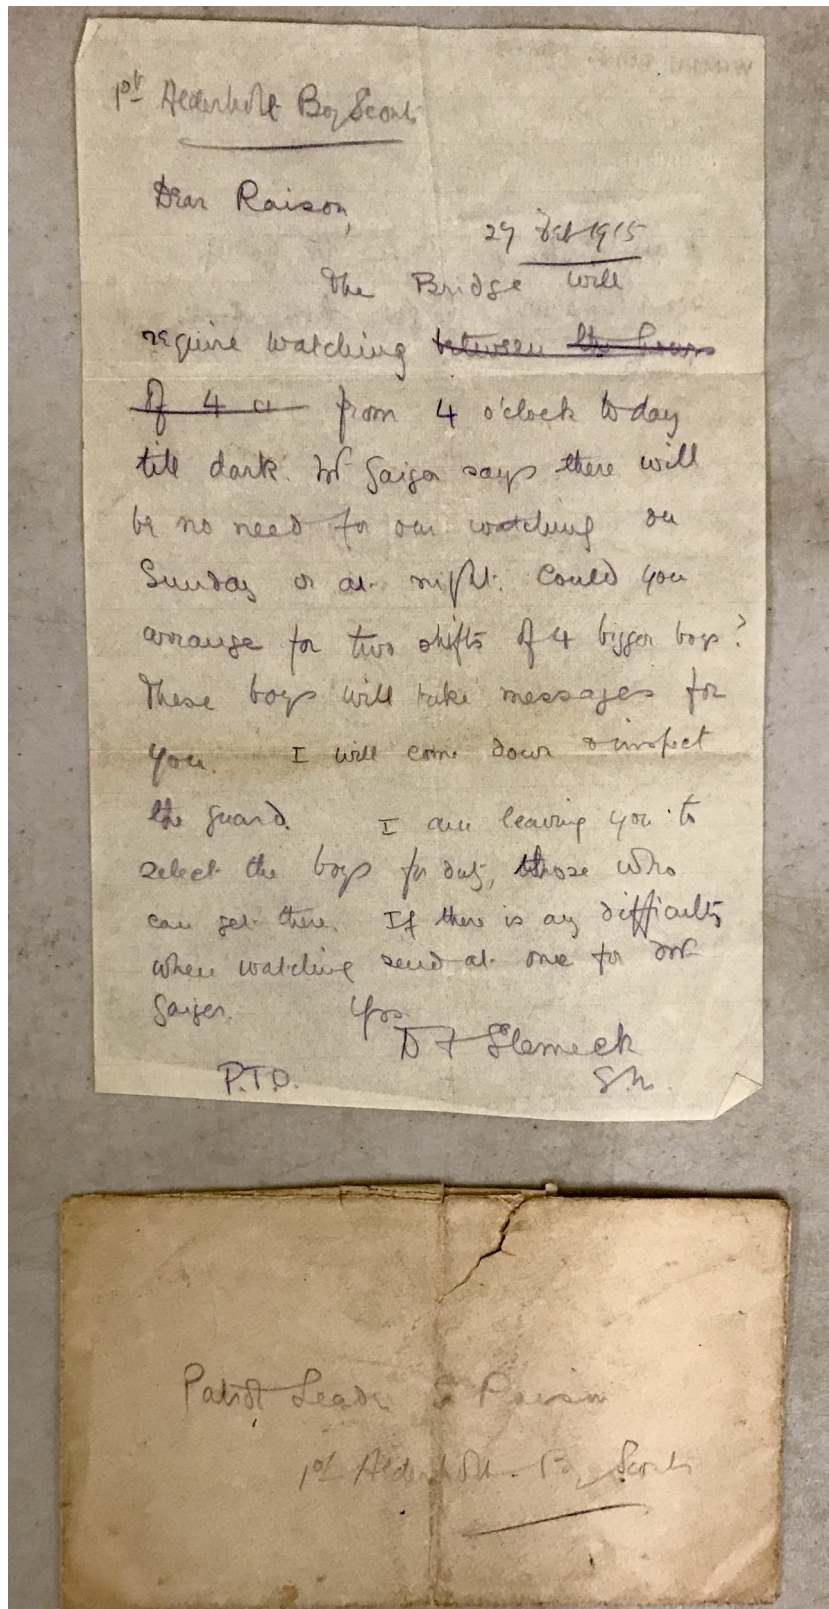 1st Alderholt Boy Scouts
Dear Raison,
29 Oct 1915
The Bridge will
require watching between the hours
of 4 a from 4 o'clock today
till dark. Mr Gaiger says there will
be no need for our watching on
Sunday or at night. Could you
arrange for two shifts of 4 bigger boys?
These boys will take messages for
you. I will come down & inspect
the guard. I am leaving you to
select the boys for duty, those who
can get there. If there is any difficulty
when watching send at once for Mr
Gaiger. Yrs
D F
P.T.O. S.M.
Patrol Leader S Raison
1st Alderholt Boy Scouts